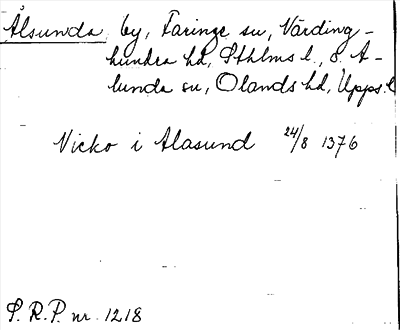 Ålsunda, by, Faringe sn, Närding-
hundra hd, Sthlms l., o. A-
lunda sn, Olands hd, Upps. l
Vicko i Alasund 24/8 1376
S. R. P. nr. 1218